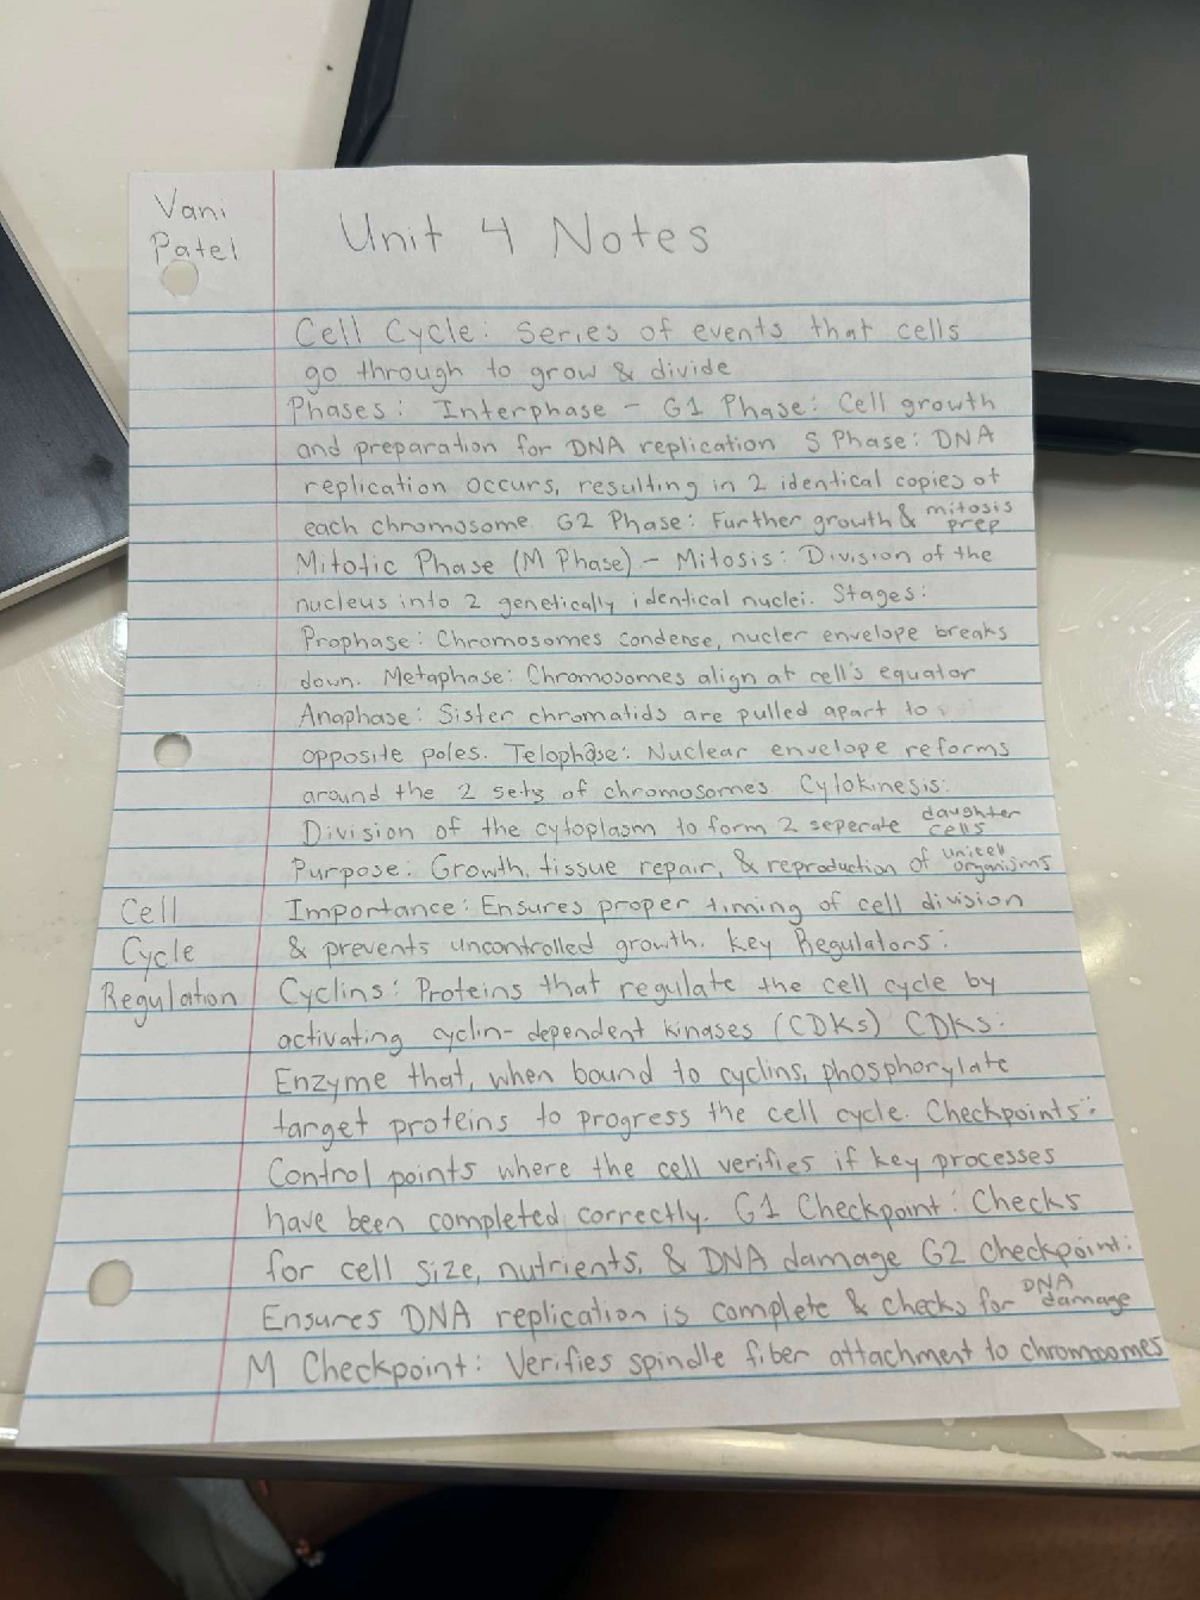 Vani
Patel
Unit 4 Notes
Cell Cycle: Series of events that cells
go through to grow & divide
Phases: Interphase - G1 Phase: Cell growth
and preparation for DNA replication S Phase: DNA
replication occurs, resulting in 2 identical copies of
each chromosome. G2 Phase: Further growth & mitosis prep
Mitotic Phase (M Phase) - Mitosis: Division of the
nucleus into 2 genetically identical nuclei. Stages:
Prophase: Chromosomes condense, nucler envelope breaks
down. Metaphase: Chromosomes align at cell's equator
Anaphase: Sister chromatids are pulled apart to
opposite poles. Telophase: Nuclear envelope reforms
around the 2 sets of chromosomes Cytokinesis:
Division of the cytoplasm to form 2 seperate daughter cells
Purpose: Growth, tissue repair, & reproduction of unicell organisms
Cell
Cycle
Regulation
Importance: Ensures proper timing of cell division
& prevents uncontrolled growth. Key Regulators:
Cyclins: Proteins that regulate the cell cycle by
activating cyclin-dependent kinases (CDKs) CDKs:
Enzyme that, when bound to cyclins, phosphorylate
target proteins to progress the cell cycle. Checkpoints:
Control points where the cell verifies if key processes
have been completed correctly. G1 Checkpoint: Checks
for cell size, nutrients, & DNA damage G2 checkpoint:
Ensures DNA replication is complete & checks for DNA damage
M Checkpoint: Verifies spindle fiber attachment to chromosomes